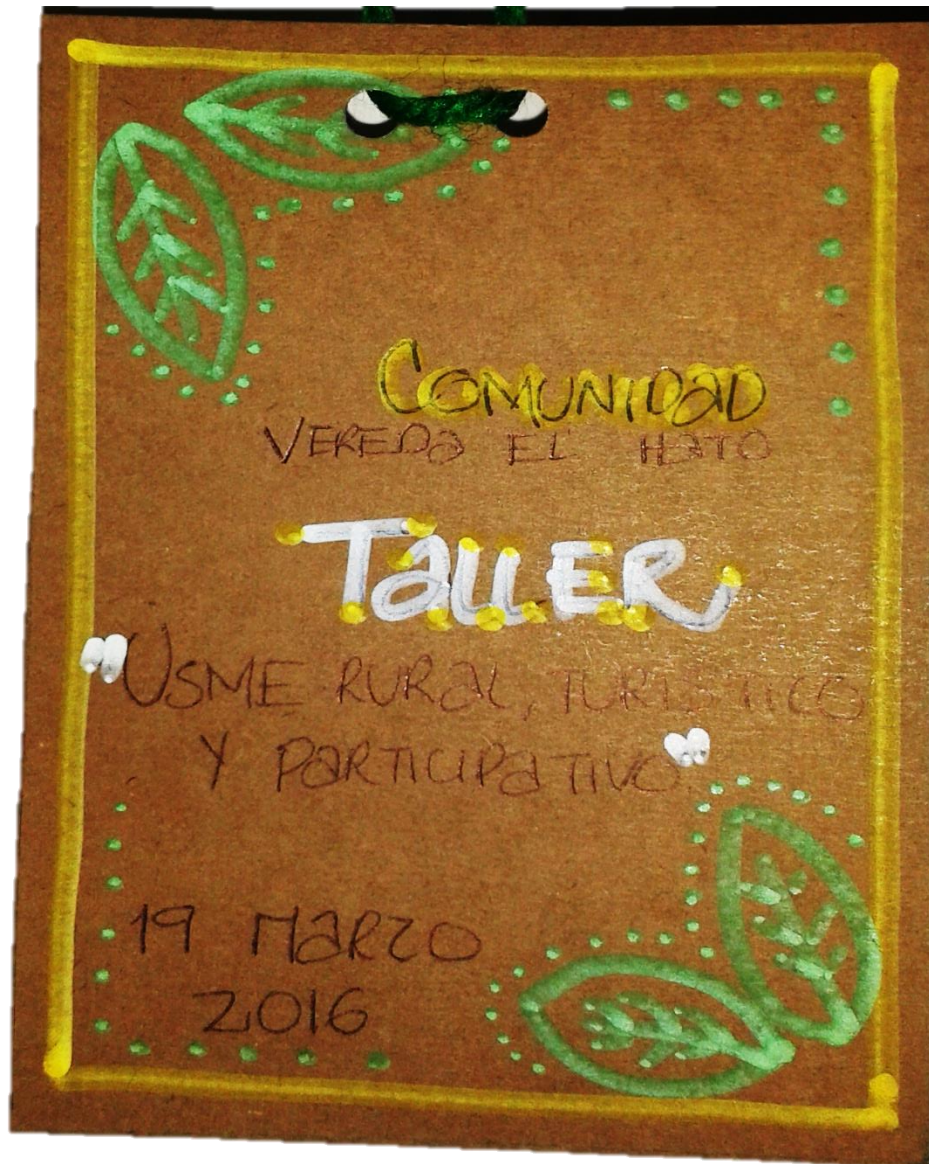 COMUNIDAD
VEREDA EL HATO
TALLER
"USME RURAL, TURÍSTICO
Y PARTICIPATIVO"
19 MARZO
2016